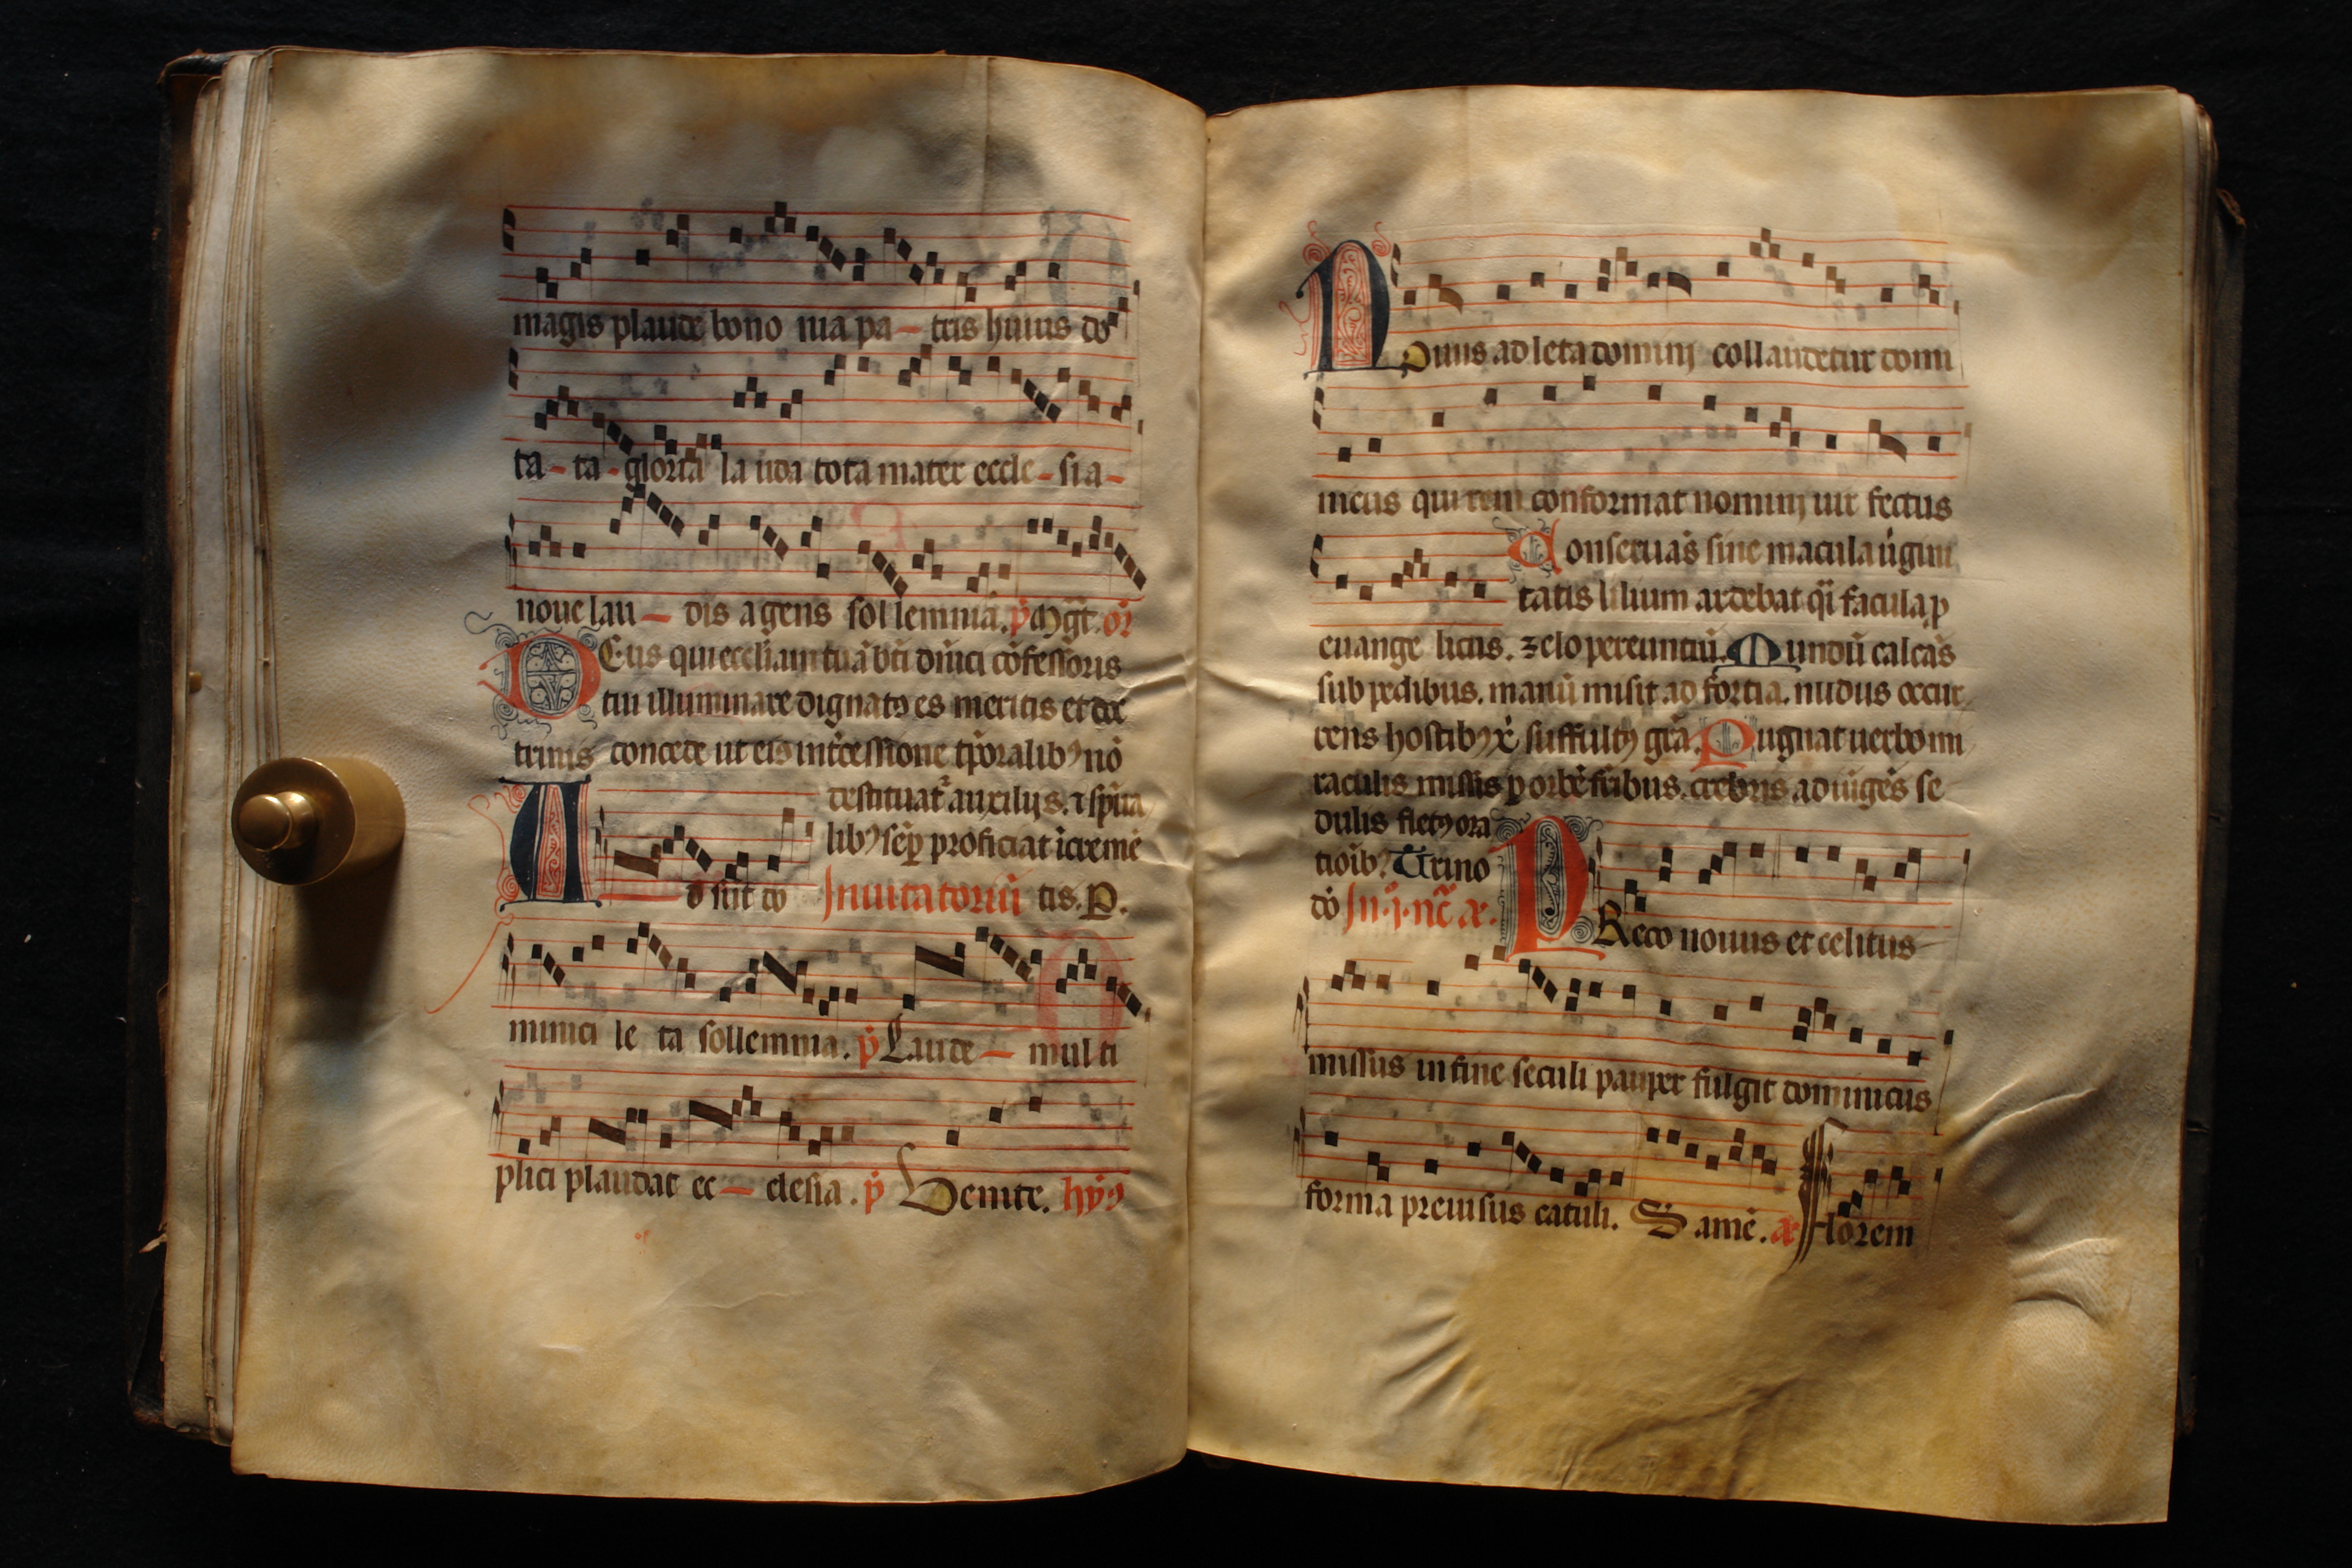 magis plaude bono nia pa - tris huius do
ta - ta - gloria la uda tota mater eccle - sia -
noue lau - dis agens sollemnia. p̄ Mgt̄. or̄
DEus qui eccl̄iam tuā bt̄i dn̄ici cōfessoris
tui illuminare dignatꝰ es meritis et doc
trinis concede ut eiꝰ int̄cessione tp̄oralibꝰ nō
destituat᷑ auxilijs. ⁊ sp̄ua
libꝰ sēp̲ proficiat īcremē
A d sūt do Inuitatoriū tis. P.
minici le ta sollemnia. p̄ Laude - multi
plici plaudat ec - clesia. p̄ Venite. hȳꝰ
Nouus adleta domini collaudetur domi
nicus qui rem conformat nomini uir fectus
Conseruās sine macula ūgini
tatis lilium ardebat q̄i facula p̲
euange licus. zelo pereuntiū. Mundū calcās
sub pedibus. manū misit ad fortia. nudus occur
rens hostibꝰ xp̄i suffultꝰ grā. Pugnat uerbo mi
raculis missis p̲ orbē frībus. crebris adiūgēs se
dulis fletꝰ ora
tioībꝰ Trino
dō In .j. nc̄. a.
PReco nouus et celitus
missus in fine seculi pauper fulgit dominicus
forma preuisus catuli. S amē. a Florem